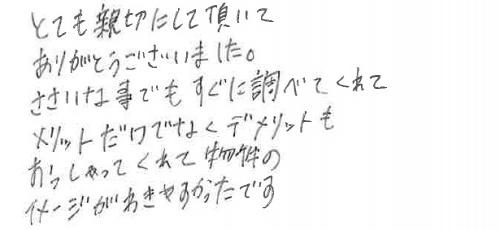 とても親切にして頂いて
ありがとうございました。
ささいな事でもすぐに調べてくれて
メリットだけでなくデメリットも
おっしゃってくれて物件の
イメージがわきやすかったです